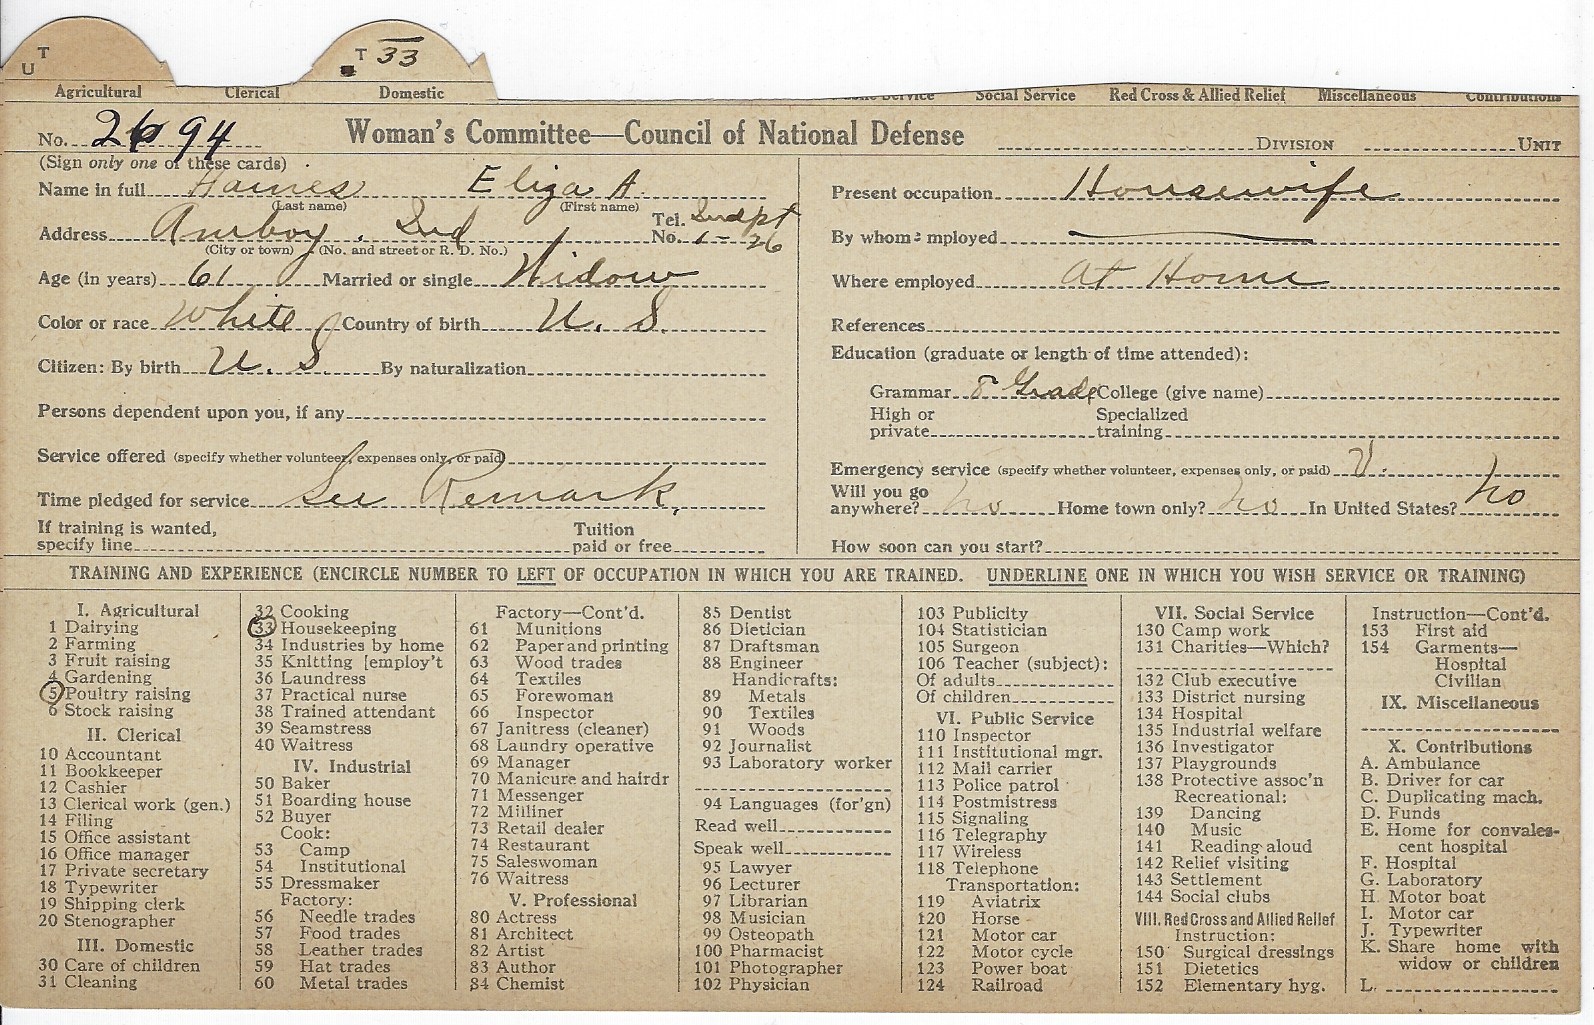 T
U
T 33
Agricultural Clerical Domestic Social Service Red Cross & Allied Relief Miscellaneous Contributions
No. 2694 Woman's Committee—Council of National Defense DIVISION UNIT
(Sign only one of these cards)
Name in full Haines Eliza A.
(Last name) (First name)
Address Amboy, Ind Tel. No. 1-26
(City or town) (No. and street or R. D. No.)
Age (in years) 61 Married or single Widow
Color or race White Country of birth U. S.
Citizen: By birth U. S. By naturalization
Persons dependent upon you, if any
Service offered (specify whether volunteer, expenses only, or paid)
Time pledged for service See Remark.
If training is wanted, specify line Tuition paid or free
Present occupation Housewife
By whom employed
Where employed At Home
References
Education (graduate or length of time attended):
Grammar 8 Grade College (give name)
High or private Specialized training
Emergency service (specify whether volunteer, expenses only, or paid) V.
Will you go anywhere? no Home town only? no In United States? no
How soon can you start?
TRAINING AND EXPERIENCE (ENCIRCLE NUMBER TO LEFT OF OCCUPATION IN WHICH YOU ARE TRAINED. UNDERLINE ONE IN WHICH YOU WISH SERVICE OR TRAINING)
I. Agricultural
1 Dairying
2 Farming
3 Fruit raising
4 Gardening
5 Poultry raising
6 Stock raising
II. Clerical
10 Accountant
11 Bookkeeper
12 Cashier
13 Clerical work (gen.)
14 Filing
15 Office assistant
16 Office manager
17 Private secretary
18 Typewriter
19 Shipping clerk
20 Stenographer
III. Domestic
30 Care of children
31 Cleaning
32 Cooking
33 Housekeeping
34 Industries by home
35 Knitting [employ't
36 Laundress
37 Practical nurse
38 Trained attendant
39 Seamstress
40 Waitress
IV. Industrial
50 Baker
51 Boarding house
52 Buyer
Cook:
53 Camp
54 Institutional
55 Dressmaker
Factory:
56 Needle trades
57 Food trades
58 Leather trades
59 Hat trades
60 Metal trades
Factory—Cont'd.
61 Munitions
62 Paper and printing
63 Wood trades
64 Textiles
65 Forewoman
66 Inspector
67 Janitress (cleaner)
68 Laundry operative
69 Manager
70 Manicure and hairdr
71 Messenger
72 Milliner
73 Retail dealer
74 Restaurant
75 Saleswoman
76 Waitress
V. Professional
80 Actress
81 Architect
82 Artist
83 Author
84 Chemist
85 Dentist
86 Dietician
87 Draftsman
88 Engineer
Handicrafts:
89 Metals
90 Textiles
91 Woods
92 Journalist
93 Laboratory worker
94 Languages (for'gn)
Read well
Speak well
95 Lawyer
96 Lecturer
97 Librarian
98 Musician
99 Osteopath
100 Pharmacist
101 Photographer
102 Physician
103 Publicity
104 Statistician
105 Surgeon
106 Teacher (subject):
Of adults
Of children
VI. Public Service
110 Inspector
111 Institutional mgr.
112 Mail carrier
113 Police patrol
114 Postmistress
115 Signaling
116 Telegraphy
117 Wireless
118 Telephone
Transportation:
119 Aviatrix
120 Horse
121 Motor car
122 Motor cycle
123 Power boat
124 Railroad
VII. Social Service
130 Camp work
131 Charities—Which?
132 Club executive
133 District nursing
134 Hospital
135 Industrial welfare
136 Investigator
137 Playgrounds
138 Protective assoc'n
Recreational:
139 Dancing
140 Music
141 Reading aloud
142 Relief visiting
143 Settlement
144 Social clubs
VIII. Red Cross and Allied Relief
Instruction:
150 Surgical dressings
151 Dietetics
152 Elementary hyg.
Instruction—Cont'd.
153 First aid
154 Garments—
Hospital
Civilian
IX. Miscellaneous
X. Contributions
A. Ambulance
B. Driver for car
C. Duplicating mach.
D. Funds
E. Home for convales-
cent hospital
F. Hospital
G. Laboratory
H. Motor boat
I. Motor car
J. Typewriter
K. Share home with
widow or children
L.